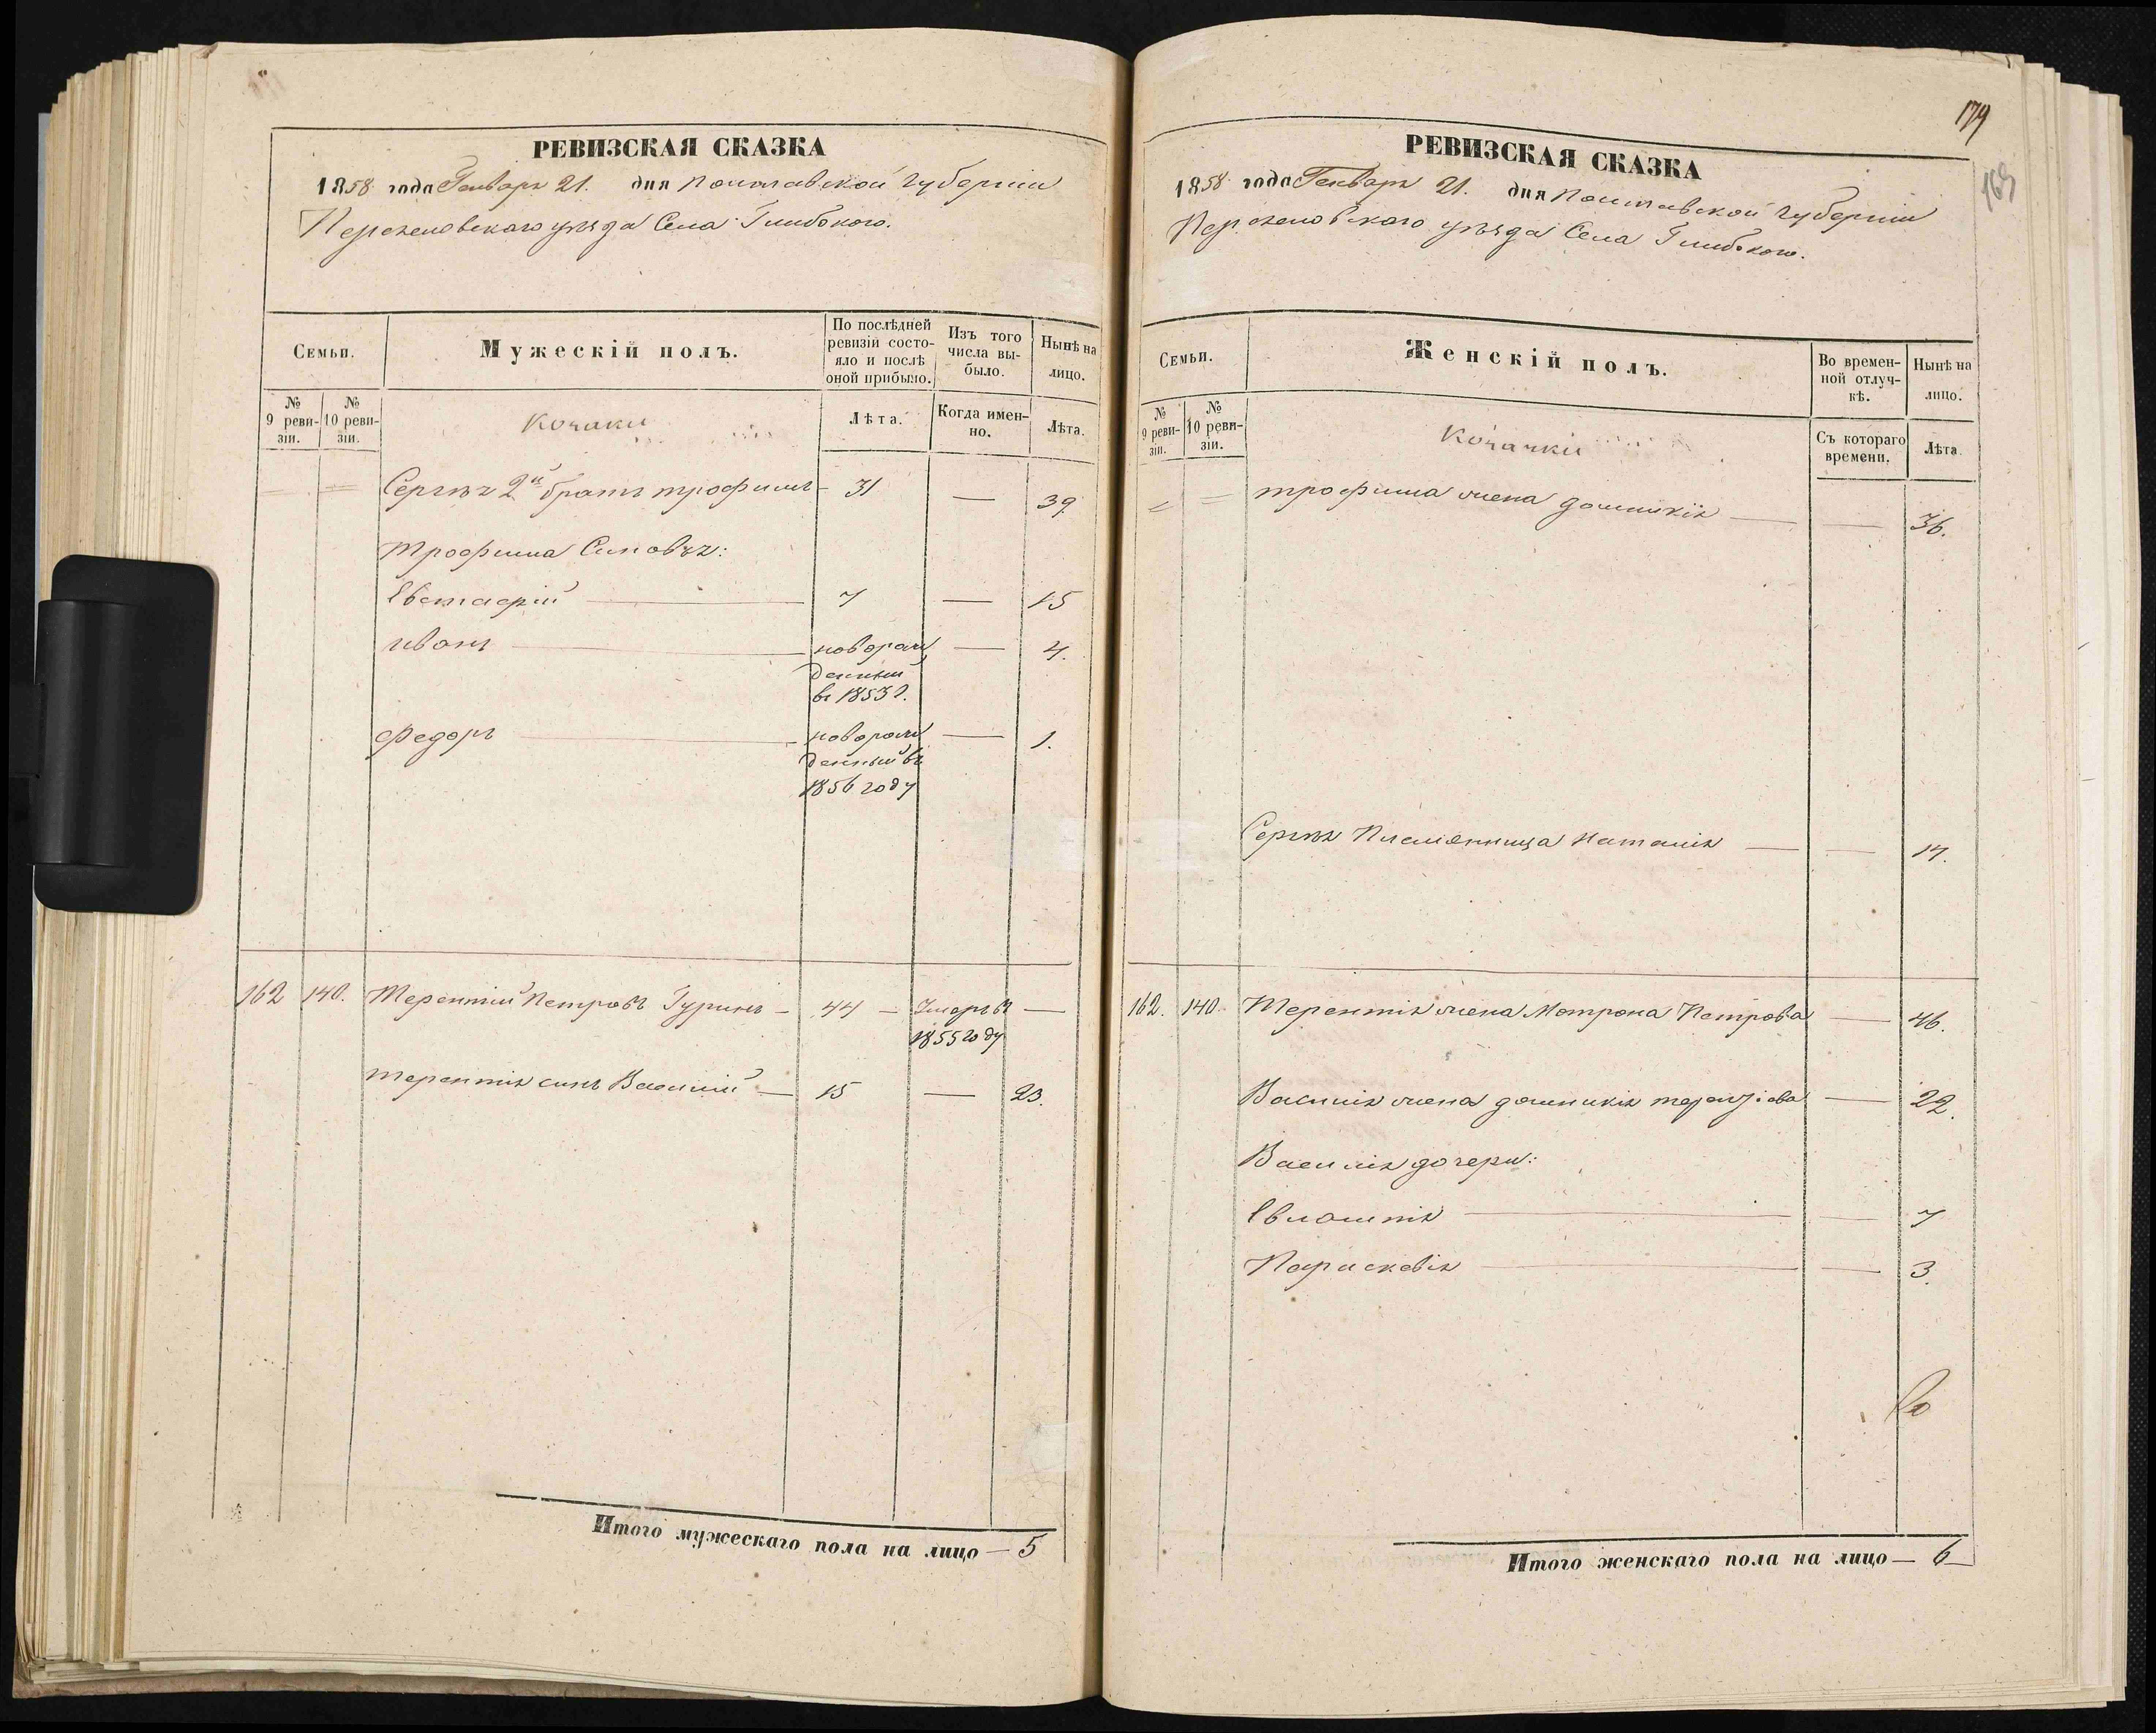 РЕВИЗСКАЯ СКАЗКА
1858 года Генваря 21. дня Полтавской губерніи
Переяславскаго уѣзда Села Глибокого.
Семьи.
Мужескій полъ.
По послѣдней ревизіи состояло и послѣ оной прибыло.
Изъ того числа выбыло.
Нынѣ на лицо.
№ 9 ревизіи.
№ 10 ревизіи.
Козаки
Лѣта.
Когда именно.
Лѣта.
Сергѣя 2й братъ трофимъ — 31 — 39
трофима Сыновья:
Евстафій — 7 — 15
иванъ — новорожденный въ 1853 г. — 4.
федоръ — новорожденный въ 1856 году — 1.
162 140. Терентій Петровъ Гуринъ — 44 — Умеръ въ 1855 году —
терентія сынъ Василій — 15 — 23.
Итого мужескаго пола на лицо — 5
179
РЕВИЗСКАЯ СКАЗКА
1858 года Генваря 21. дня Полтавской губерніи
Переяславскаго уѣзда Села Глибокого.
Семьи.
Женскій полъ.
Во временной отлучкѣ.
Нынѣ на лицо.
№ 9 ревизіи.
№ 10 ревизіи.
Козачки
Съ котораго времени.
Лѣта.
трофима жена домникія — — 36.
Сергѣя Племянница Наталія — — 17.
162. 140. Терентія жена Мотрона Петрова — 46.
Василія жена домникія — 22.
Василія дочери:
Евлампія — — 7
Параскевія — — 3.
Итого женскаго пола на лицо — 6